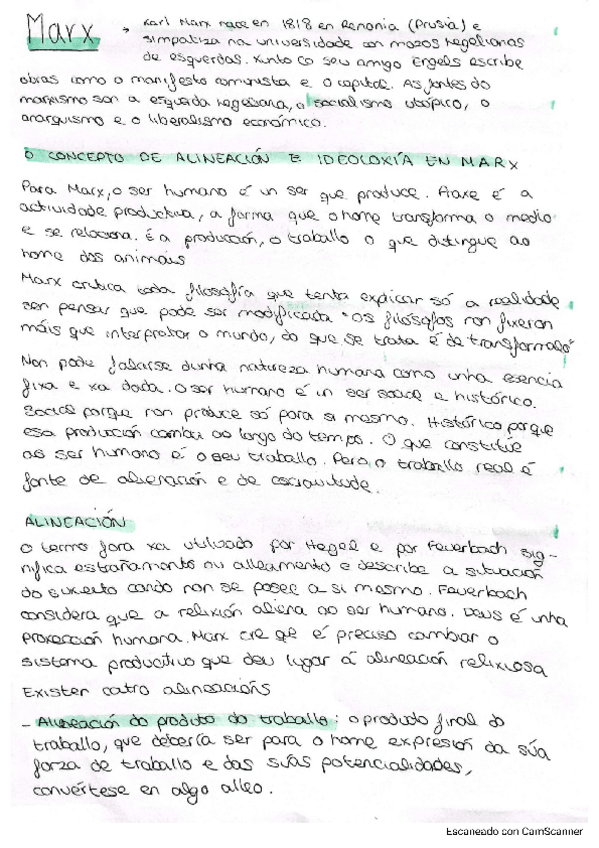 Marx → Karl Marx nace en 1818 en Renania (Prusia) e
simpatiza na universidade con mozos hegelianos
de esquerdas. Xunto co seu amigo Engels escribe
obras como o manifesto comunista e o capital. As fontes do
marxismo son a esquerda hegeliana, o socialismo utópico, o
anarquismo e o liberalismo económico.
O CONCEPTO DE ALINEACIÓN E IDEOLOXÍA EN MARX
Para Marx, o ser humano é un ser que produce. Praxe é a
actividade productiva, a forma que o home transforma o medio
e se relaciona. É a producción, o traballo o que distingue ao
home dos animais
Marx critica toda filosofía que tenta explicar só a realidade
sen pensar que pode ser modificada "os filósofos non fixeron
máis que interpretar o mundo, do que se trata é de transformalo"
Non pode falarse dunha natureza humana como unha esencia
fixa e xa dada. O ser humano é un ser social e histórico.
Social porque non produce só para si mesmo. Histórico porque
esa producción cambia ao longo do tempo. O que constitúe
ao ser humano é o seu traballo. Pero o traballo real é
fonte de alienación e de escravitude.
ALINEACIÓN
O termo fora xa utilizado por Hegel e por Feuerbach sig-
nifica estrañamento ou alleamento e describe a situación
do suxeito cando non se posee a si mesmo. Feuerbach
considera que a relixión aliena ao ser humano. Deus é unha
proxección humana. Marx cre qe é preciso cambiar o
sistema productivo que deu lugar á alineación relixiosa
Existen catro alineacións
- Alineación do produto do traballo: o producto final do
traballo, que debería ser para o home expresión da súa
forza de traballo e das súas potencialidades,
convértese en algo alleo.
Escaneado con CamScanner